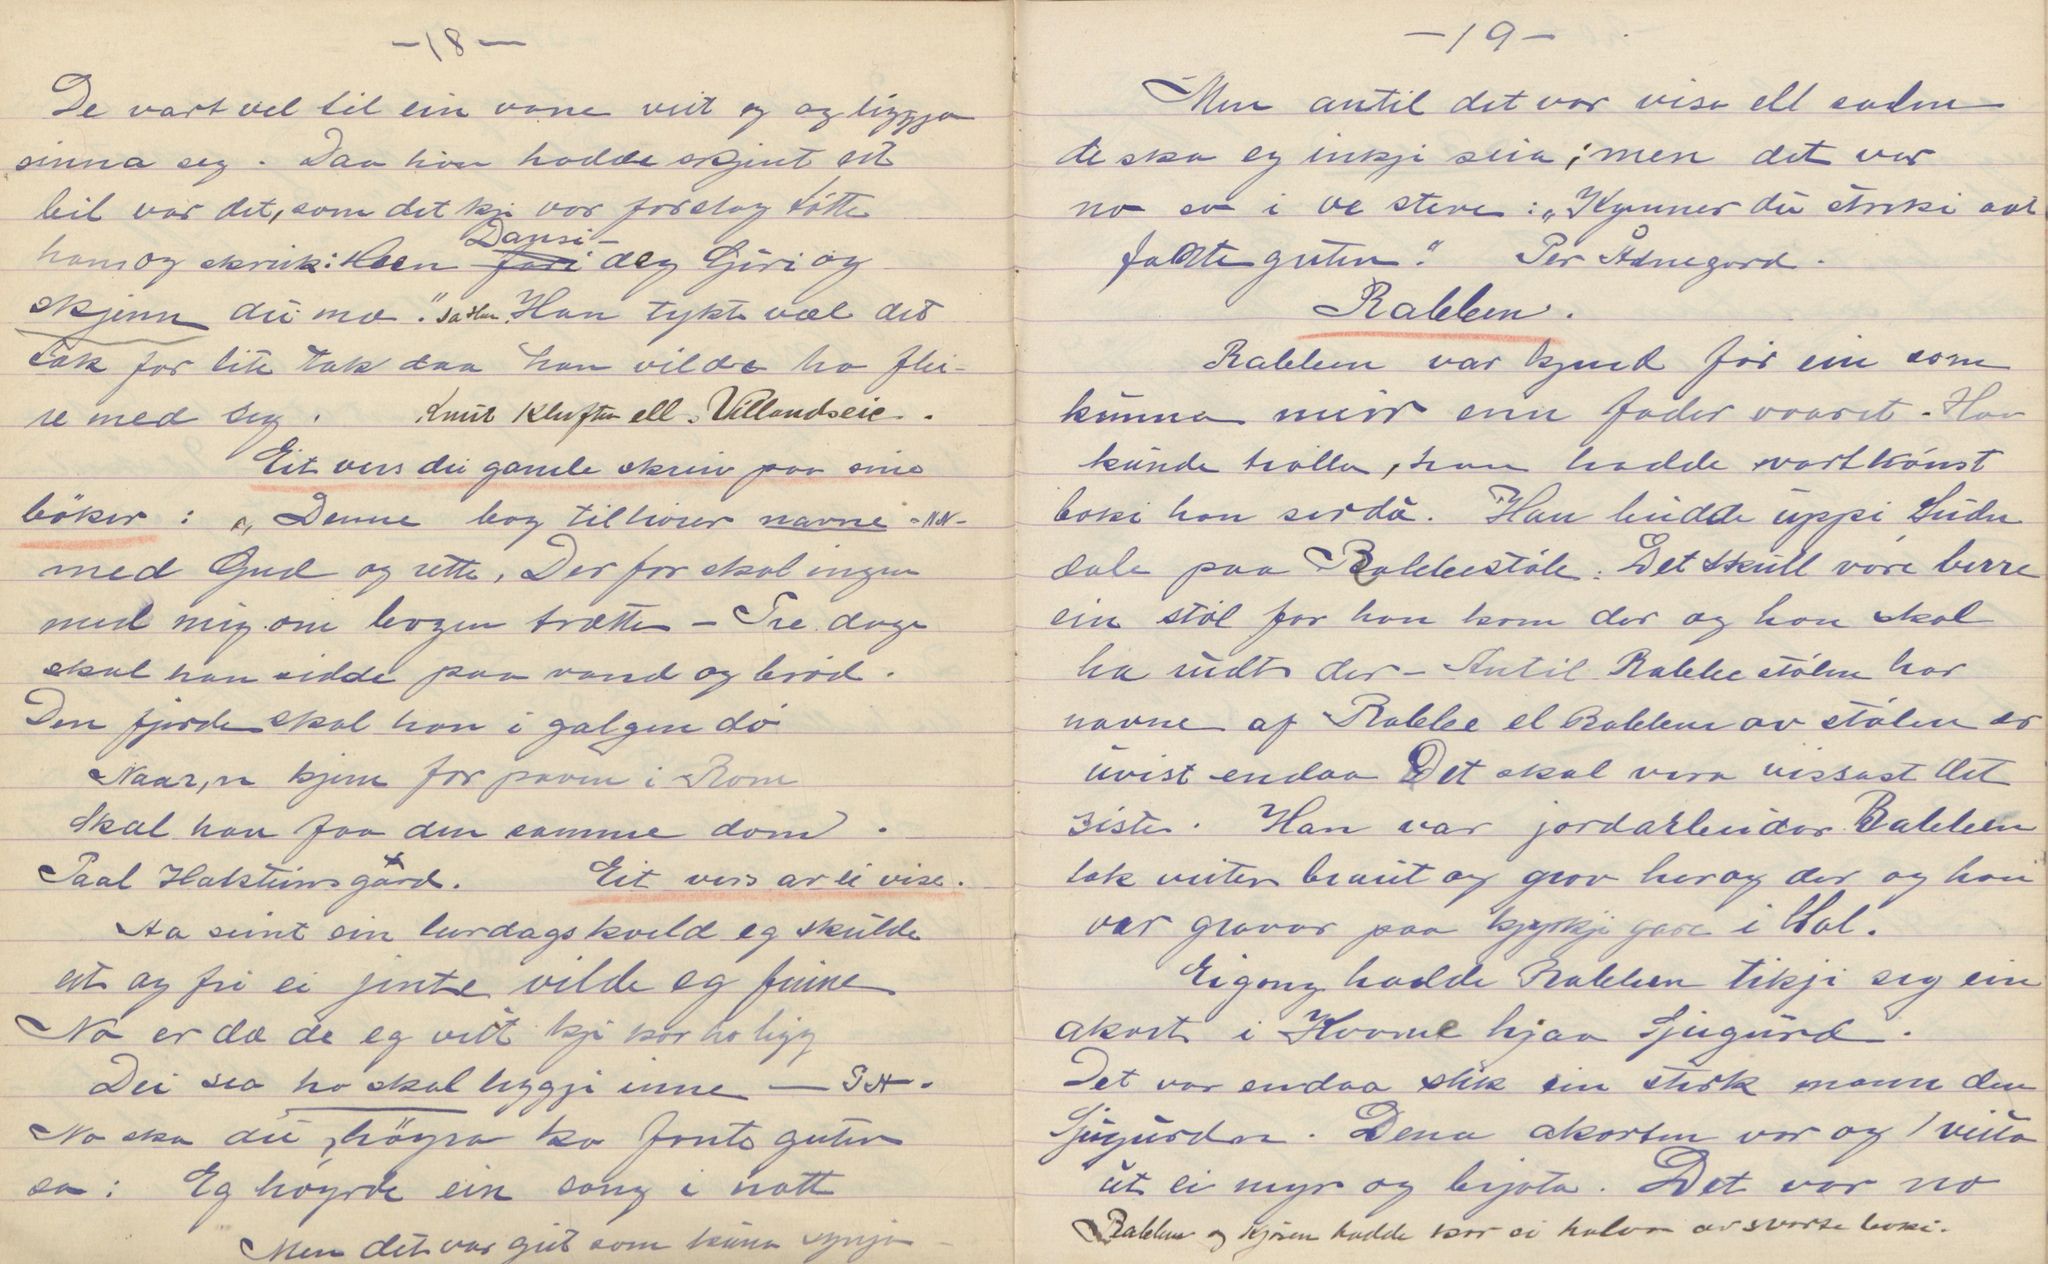 -18-
De vart vel til ein vane veit eg og liggja
sinna seg. Daa han hadde skjint eit
bil var det, som det kji var forslag totte
han og skreik: Kom Dansi- deg Guri og
skjenn du mæ." sa Han. Han tykte væl det
tok for lite tak daa han vilde ha flei-
re med seg. Knut Kluften ell. Villandseie.
Eit vers dei gamle skreiv paa sine
bøker: „Denne bog tilhører navne -NN-
med Gud og rette, Derfor skal ingen
med mig om bogen trætte - Tre dage
skal han sidde paa vand og brød.
Den fjerde skal han i galgen dø
Naar,n kjem for paven i Rom
skal han faa den samme dom.
Paal Haksteinsgård. Eit vers av ei vise.
Aa seint ein laurdagskveld eg skulde
ut og fri ei jente vilde eg finne
No er dæ de eg veit kji kor ho ligg
Dei sea ho skal liggji inne -
No ska du høyra ko fante guten
sa: Eg høyrde ein song i natt
Men det var gut som kunna syngja
-19-
Men antil det var visa ell soden
de ska eg inkji seia; men det var
no so i ve steve: „Kynner du strøki aat
fante guten." Per Ådnegard.
Rabben.
Rabben var kjend for ein som
kunna meir enn fader vaaret. Han
kunde trolla, han hadde svartkonst
boki han ser du. Han budde uppi Sudn
dale paa Rabbestøle. Det skull vøre berre
ein støl før han kom der og han skal
ha rudt der - Antil Rabbestølen har
navne af Rabbe el Rabben av stølen er
uvist endaa Det skal vera vissast det
siste. Han var jordarbeidar. Rabben
tok veiter braut og grov her og der og han
var gravar paa kjyrkjegare i Hol.
Eigong hadde Rabben tikji seg ein
akort i Kvorne hjaa Sjugurd.
Det var endaa slik ein sterk mann den
Sjugurdn. Dena akorten var og veita
ut ei myr og brjota. Det var no
Rabben og Kjøsen hadde kor si halve av svarte boki.